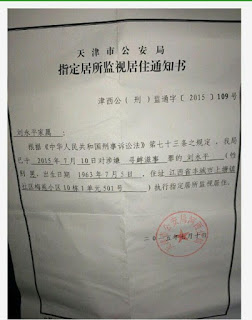 天津市公安局
指定居所监视居住通知书
津西公(刑)监通字〔2015〕109号
刘永平家属:
根据《中华人民共和国刑事诉讼法》第七十三条之规定,我局
已于2015年7月10日对涉嫌 寻衅滋事 罪的 刘永平 (性
别 男,出生日期 1963年7月5日,住址 江西省丰城市上塘镇
社区梅苑小区19栋1单元501号 )执行指定居所监视居住。
二〇一五年七月十日